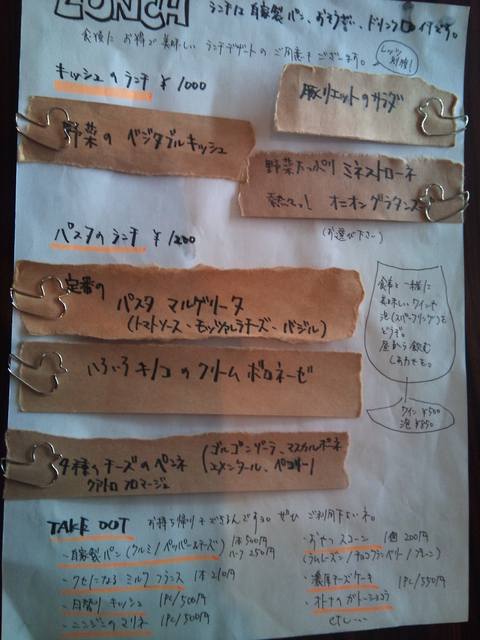 LUNCH ランチは 自家製パン、おそうざい、ドリンク付です。
食後に お得で 美味しい ランチデザートの ご用意も ございます。
キッシュのランチ ¥1000
豚リエットのサラダ
野菜の ベジタブルキッシュ
野菜たっぷり ミネストローネ
オニオングラタンスープ
(お選び下さい)
パスタのランチ ¥1200
定番の
パスタ マルゲリータ
(トマトソース・モッツァレラチーズ・バジル)
食事と一緒に
美味しいワインや
泡(スパークリング)も
どうぞ。
昼から飲む
しあわせを。
ワイン ¥500
泡 ¥850
いろいろキノコのクリームボロネーゼ
4種のチーズのペンネ
クアトロフロマージュ
(ゴルゴンゾーラ、マスカルポーネ
エメンタール、ペコリーノ)
TAKE OUT お持ち帰りもできるんですョ。ぜひ ご利用下さいネ。
・自家製パン(クルミ/ペッパーチーズ) 1本500円
ハーフ 250円
・クセになる ミルクフランス 1本 210円
・日替り キッシュ 1PC/500円
・ニンジンのマリネ 1PC/500円
・おやつスコーン 1個 200円
(ラムレーズン/チョコクランベリー/プレーン)
・濃厚チーズケーキ 1PC/550円
・オトナのガトーショコラ
etc...